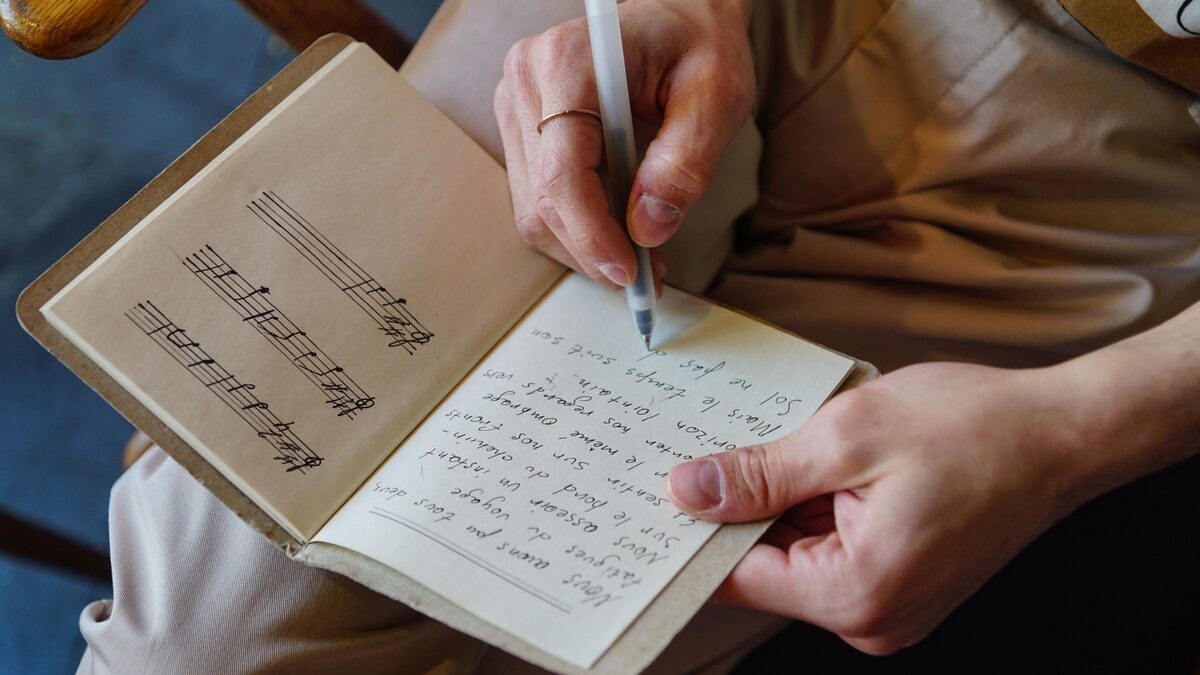 Nous avons pu tous deux,
fatigues du voyage
Nous asseoir un instant
Sur le bord du chemin-
Et sentir sur nos fronts
le même ombrage
nos regards vers
lointain.
Mais le temps suit son
Sol ne pas